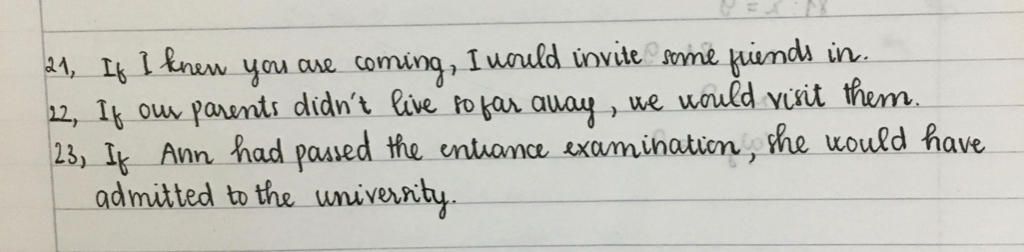 21, If I knew you are coming, I would invite some friends in.
22, If our parents didn't live so far away, we would visit them.
23, If Ann had passed the entrance examination, she would have
admitted to the university.